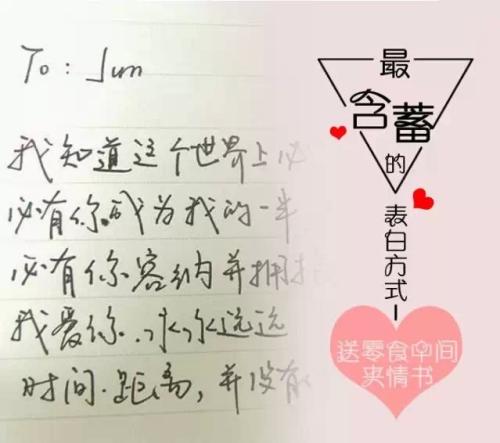 To: Jun
我知道这个世界上必
必有你成为我的一半
必有你容纳并拥抱
我爱你..永永远远
时间.距离,并没有
最
含蓄
的
表白方式
送零食中间
夹情书